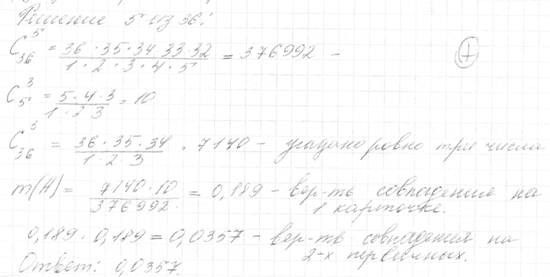 Решение 5 из 36:
C₃₆⁵ = 36·35·34·33·32 / 1·2·3·4·5 = 376992 – (+)
C₅³ = 5·4·3 / 1·2·3 = 10
C₃₆³ = 36·35·34 / 1·2·3 = 7140 – угадано ровно три числа
m(A) = 7140·10 / 376992 = 0,189 – вер-ть совпадения на 1 карточке.
0,189 · 0,189 = 0,0357 – вер-ть совпадения на 2-х
Ответ: 0,0357.